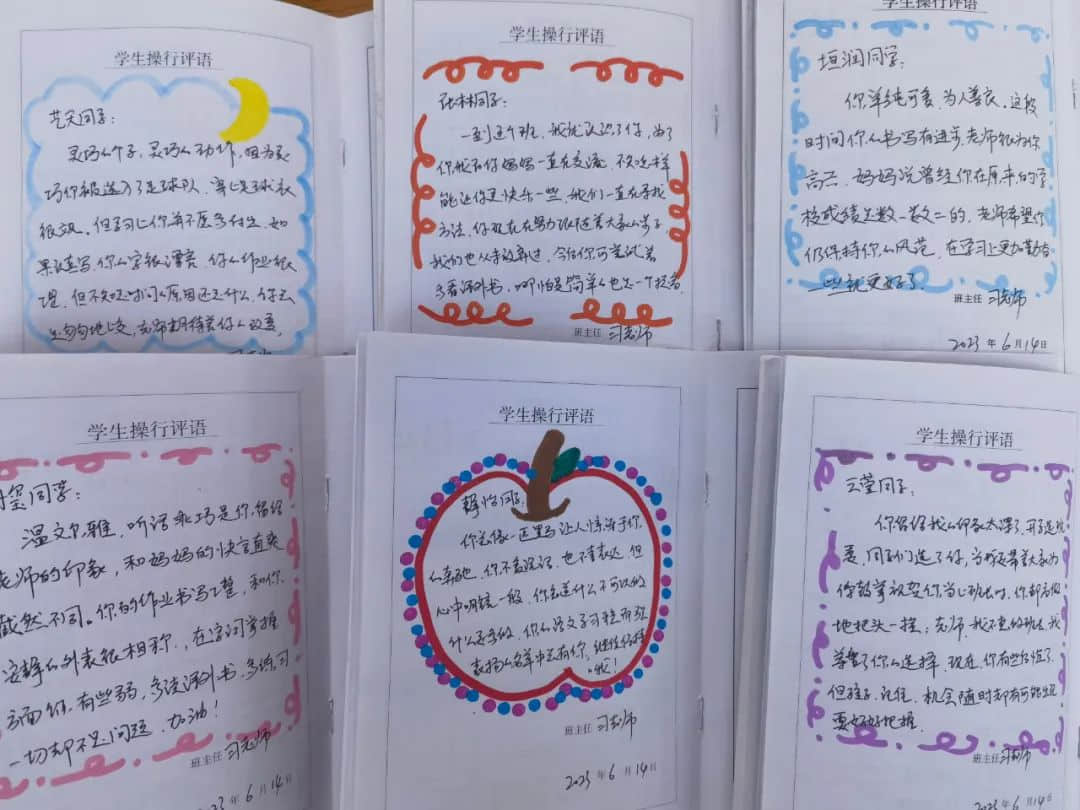 学生操行评语
艺天同学：
灵巧的个子，灵巧的动作，因为灵
巧你被选入了足球队，穿上足球衣
很飒。但学习上你并不愿多付出，如
果认真写，你的字很漂亮，你的作业很
慢，但不知时间的原因还是什么，你会
老师期待着你的改变。
学生操行评语
张林同学：
一到这个班，我就认识了你，为了
你我和你妈妈一直在交流，不知怎样
能让你更快乐一些，我们一直在寻找
方法，你现在在努力跟随着大家的步子，
我们也从未放弃过，今后你可尝试着
多看课外书，哪怕是简单的也是一个提高。
班主任 习老师
学生操行评语
垣润同学：
你单纯可爱，为人善良。这段
时间你的书写有进步，老师很为你
高兴，妈妈说曾经你在原来的学
校成绩是数一数二的，老师希望你
仍保持你的风范，在学习上更加勤奋
一些就更好了。
班主任 习老师
2023 年 6 月 14 日
学生操行评语
同学：
温文尔雅，听话乖巧是你留给
老师的印象，和妈妈的快言直爽
截然不同。你的作业书写工整，和你
安静的外表很相称，在字词掌握
方面你有些弱，多读课外书，多练习
一切都不是问题，加油！
班主任 习老师
23 年 6 月 14 日
学生操行评语
静怡同学：
你总像一匹黑马让人惊讶于你
的奔跑，你不善言词，也不善表达，但
心中明镜一般，你知道什么不可以做
什么要去做，你的语文学习稳而
表扬的名单中总有你，继续保持
哦！
班主任 习老师
2023 年 6 月 14 日
学生操行评语
云莹同学：
你留给我的印象太深了，开学选班
委，同学们选了你，当我要带着大家为
你鼓掌祝贺你当上班长时，你却高傲
地把头一摇：老师，我不想当班长，我
尊重了你的选择，现在，你有些后悔了，
但孩子，记住，机会随时都有可能出现
要好好把握。
班主任 习老师
2023 年 6 月 14 日